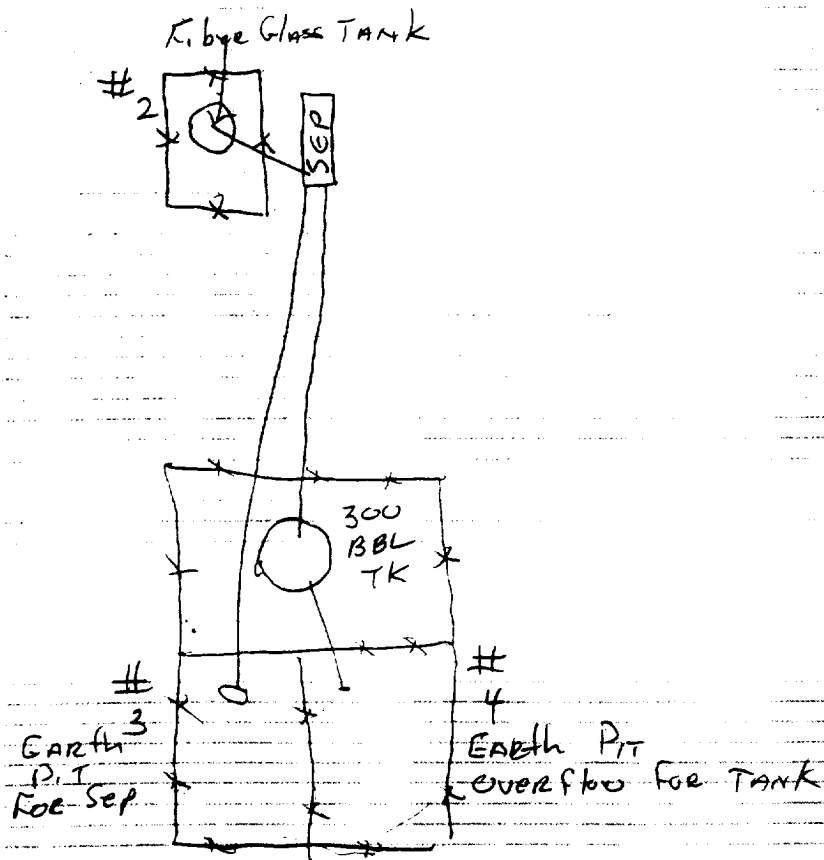 Fibre Glass TANK
# 2
SEP
300
BBL
TK
# 3
EARth
PIT
FOR SEP
# 4
EARth PIT
OVERFlow FOR TANK